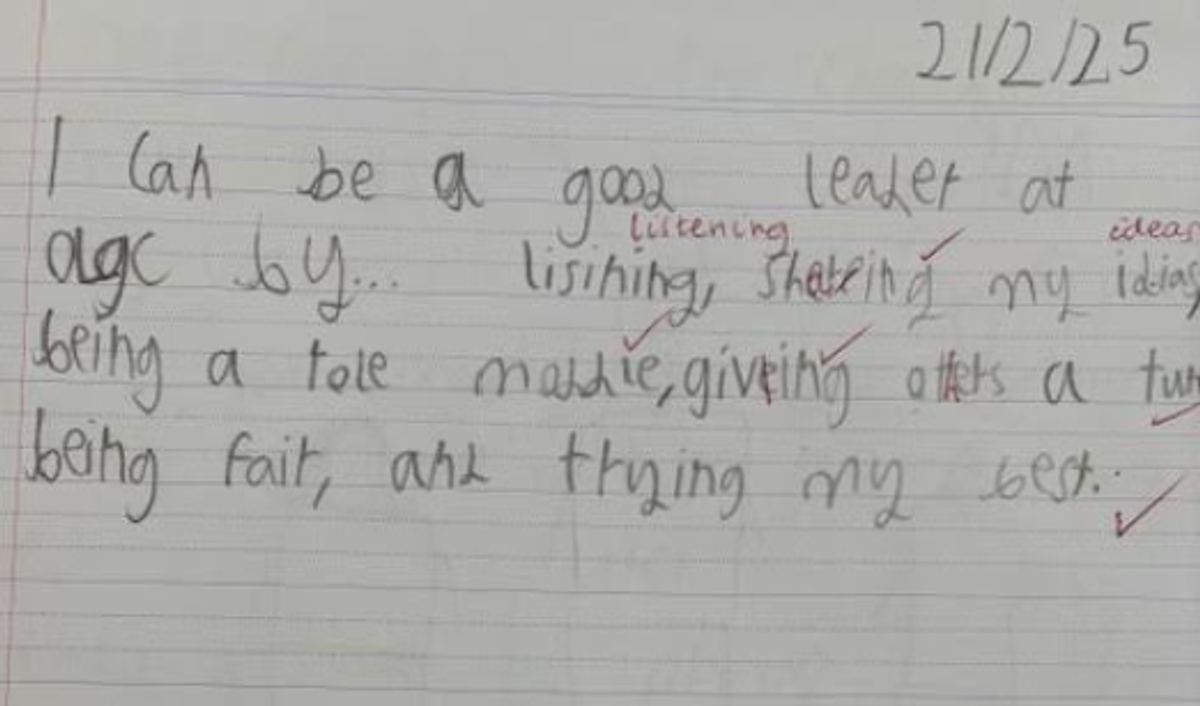 21/2/25
I Can be a good leader at
listening ideas
agc by... lisining, shareing my idias
being a role moddie, giveing others a turn
being fair, and trying my best.